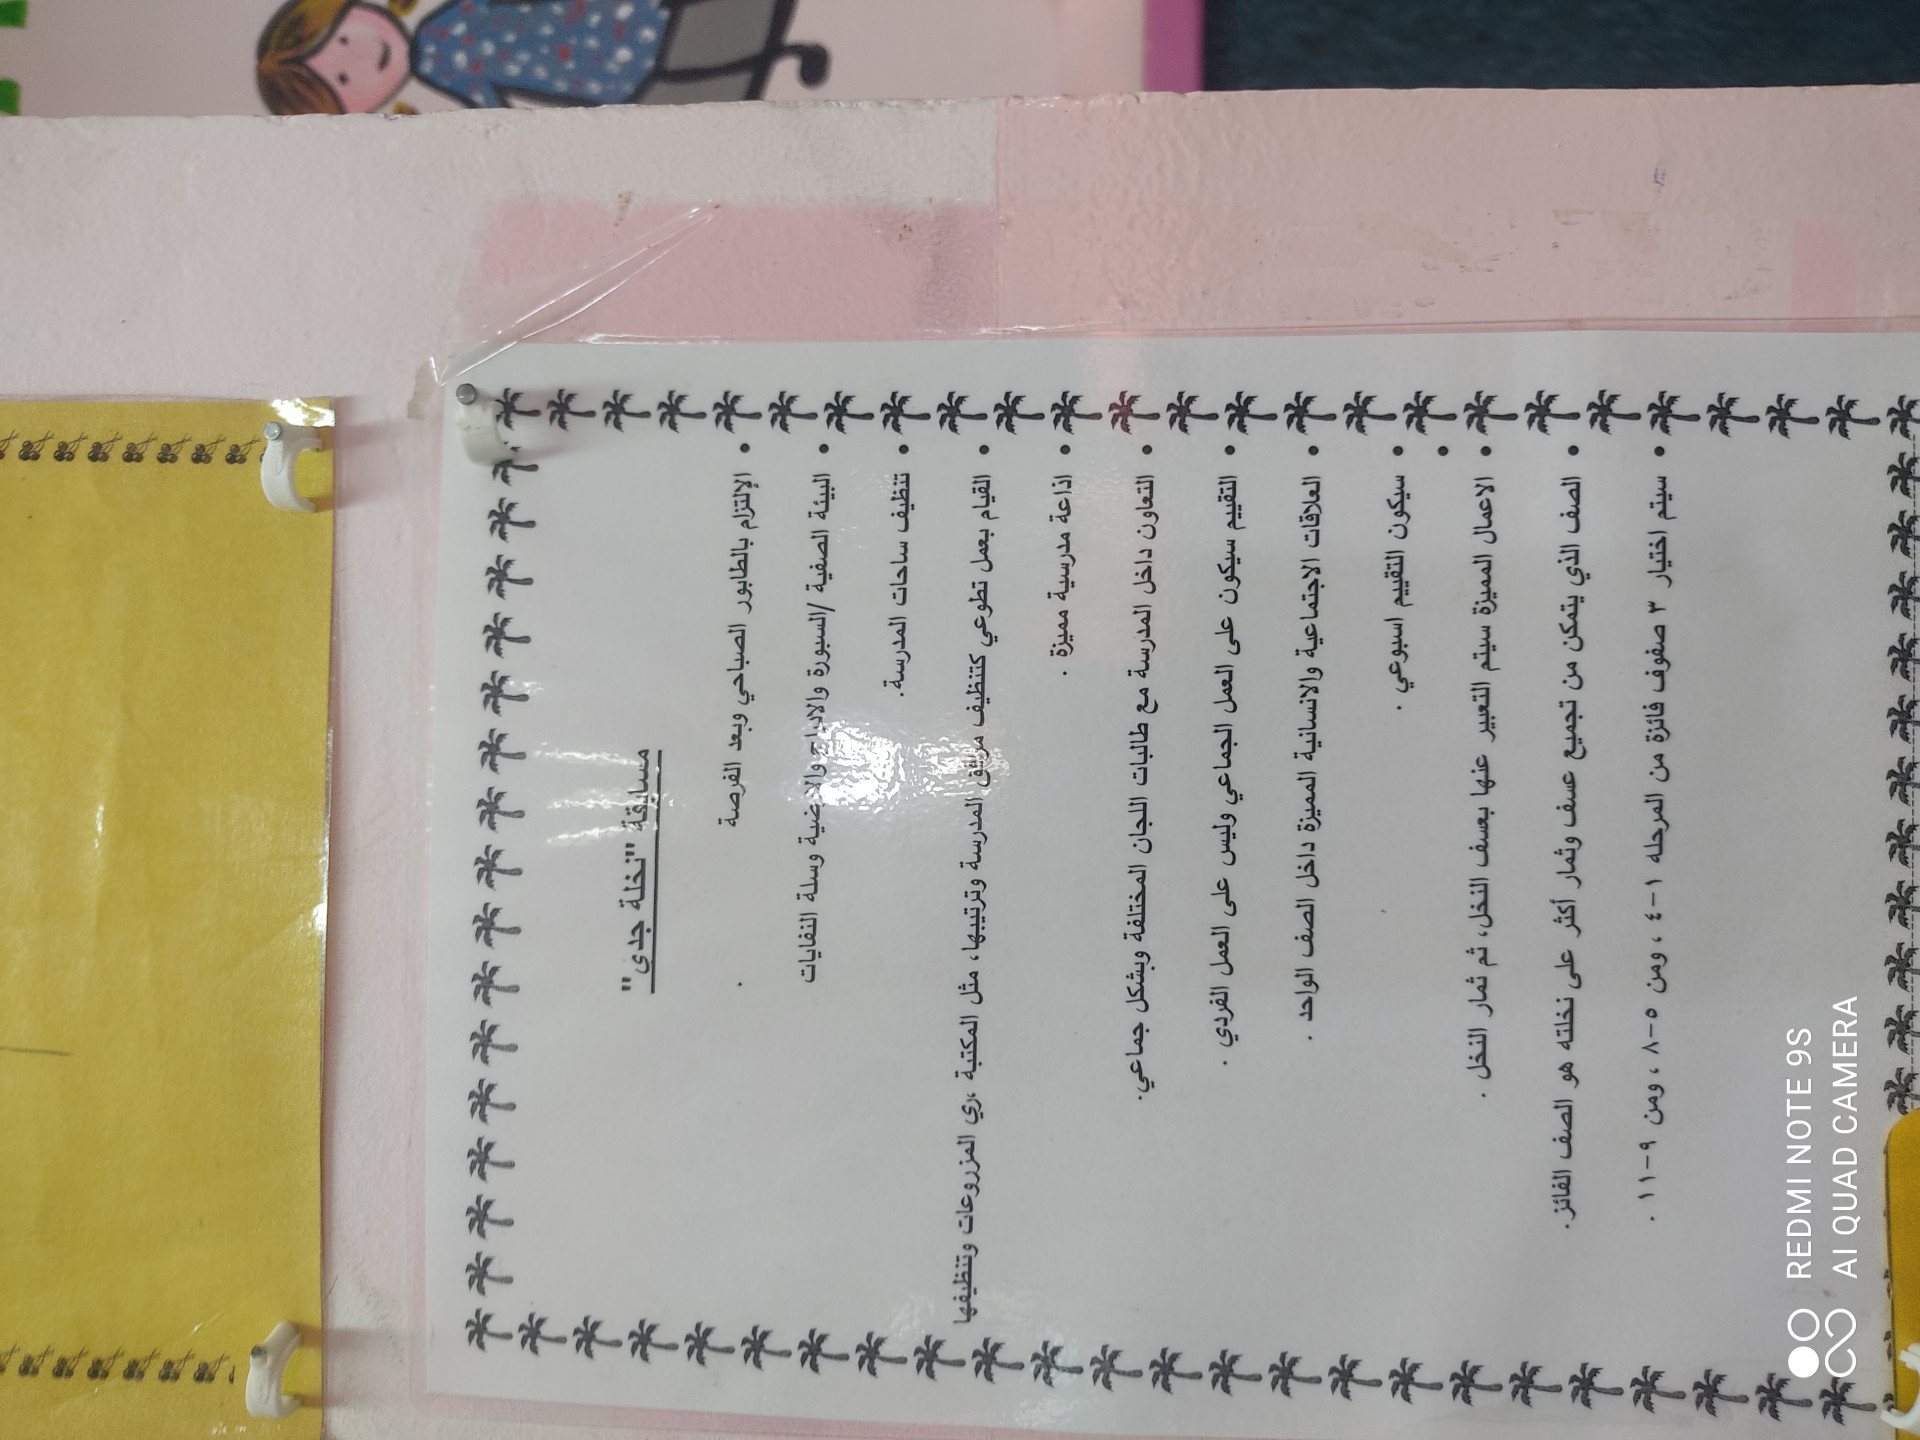 مسابقة "نخلة جدي"
• الإلتزام بالطابور الصباحي وبعد الفرصة .
• البيئة الصفية /السبورة والادراج والارضية وسلة النفايات
• تنظيف ساحات المدرسة.
• القيام بعمل تطوعي كتنظيف مرافق المدرسة وترتيبها، مثل المكتبة ،ري المزروعات وتنظيفها
• اذاعة مدرسية مميزة .
• التعاون داخل المدرسة مع طالبات اللجان المختلفة وبشكل جماعي.
• التقييم سيكون على العمل الجماعي وليس على العمل الفردي .
• العلاقات الاجتماعية والانسانية المميزة داخل الصف الواحد .
• سيكون التقييم اسبوعي .
•
• الاعمال المميزة سيتم التعبير عنها بعسف النخل، ثم ثمار النخل .
• الصف الذي يتمكن من تجميع عسف وثمار أكثر على نخلته هو الصف الفائز.
• سيتم اختيار ٣ صفوف فائزة من المرحله ١-٤ ، ومن ٥-٨ ، ومن ٩-١١ .
REDMI NOTE 9S
AI QUAD CAMERA